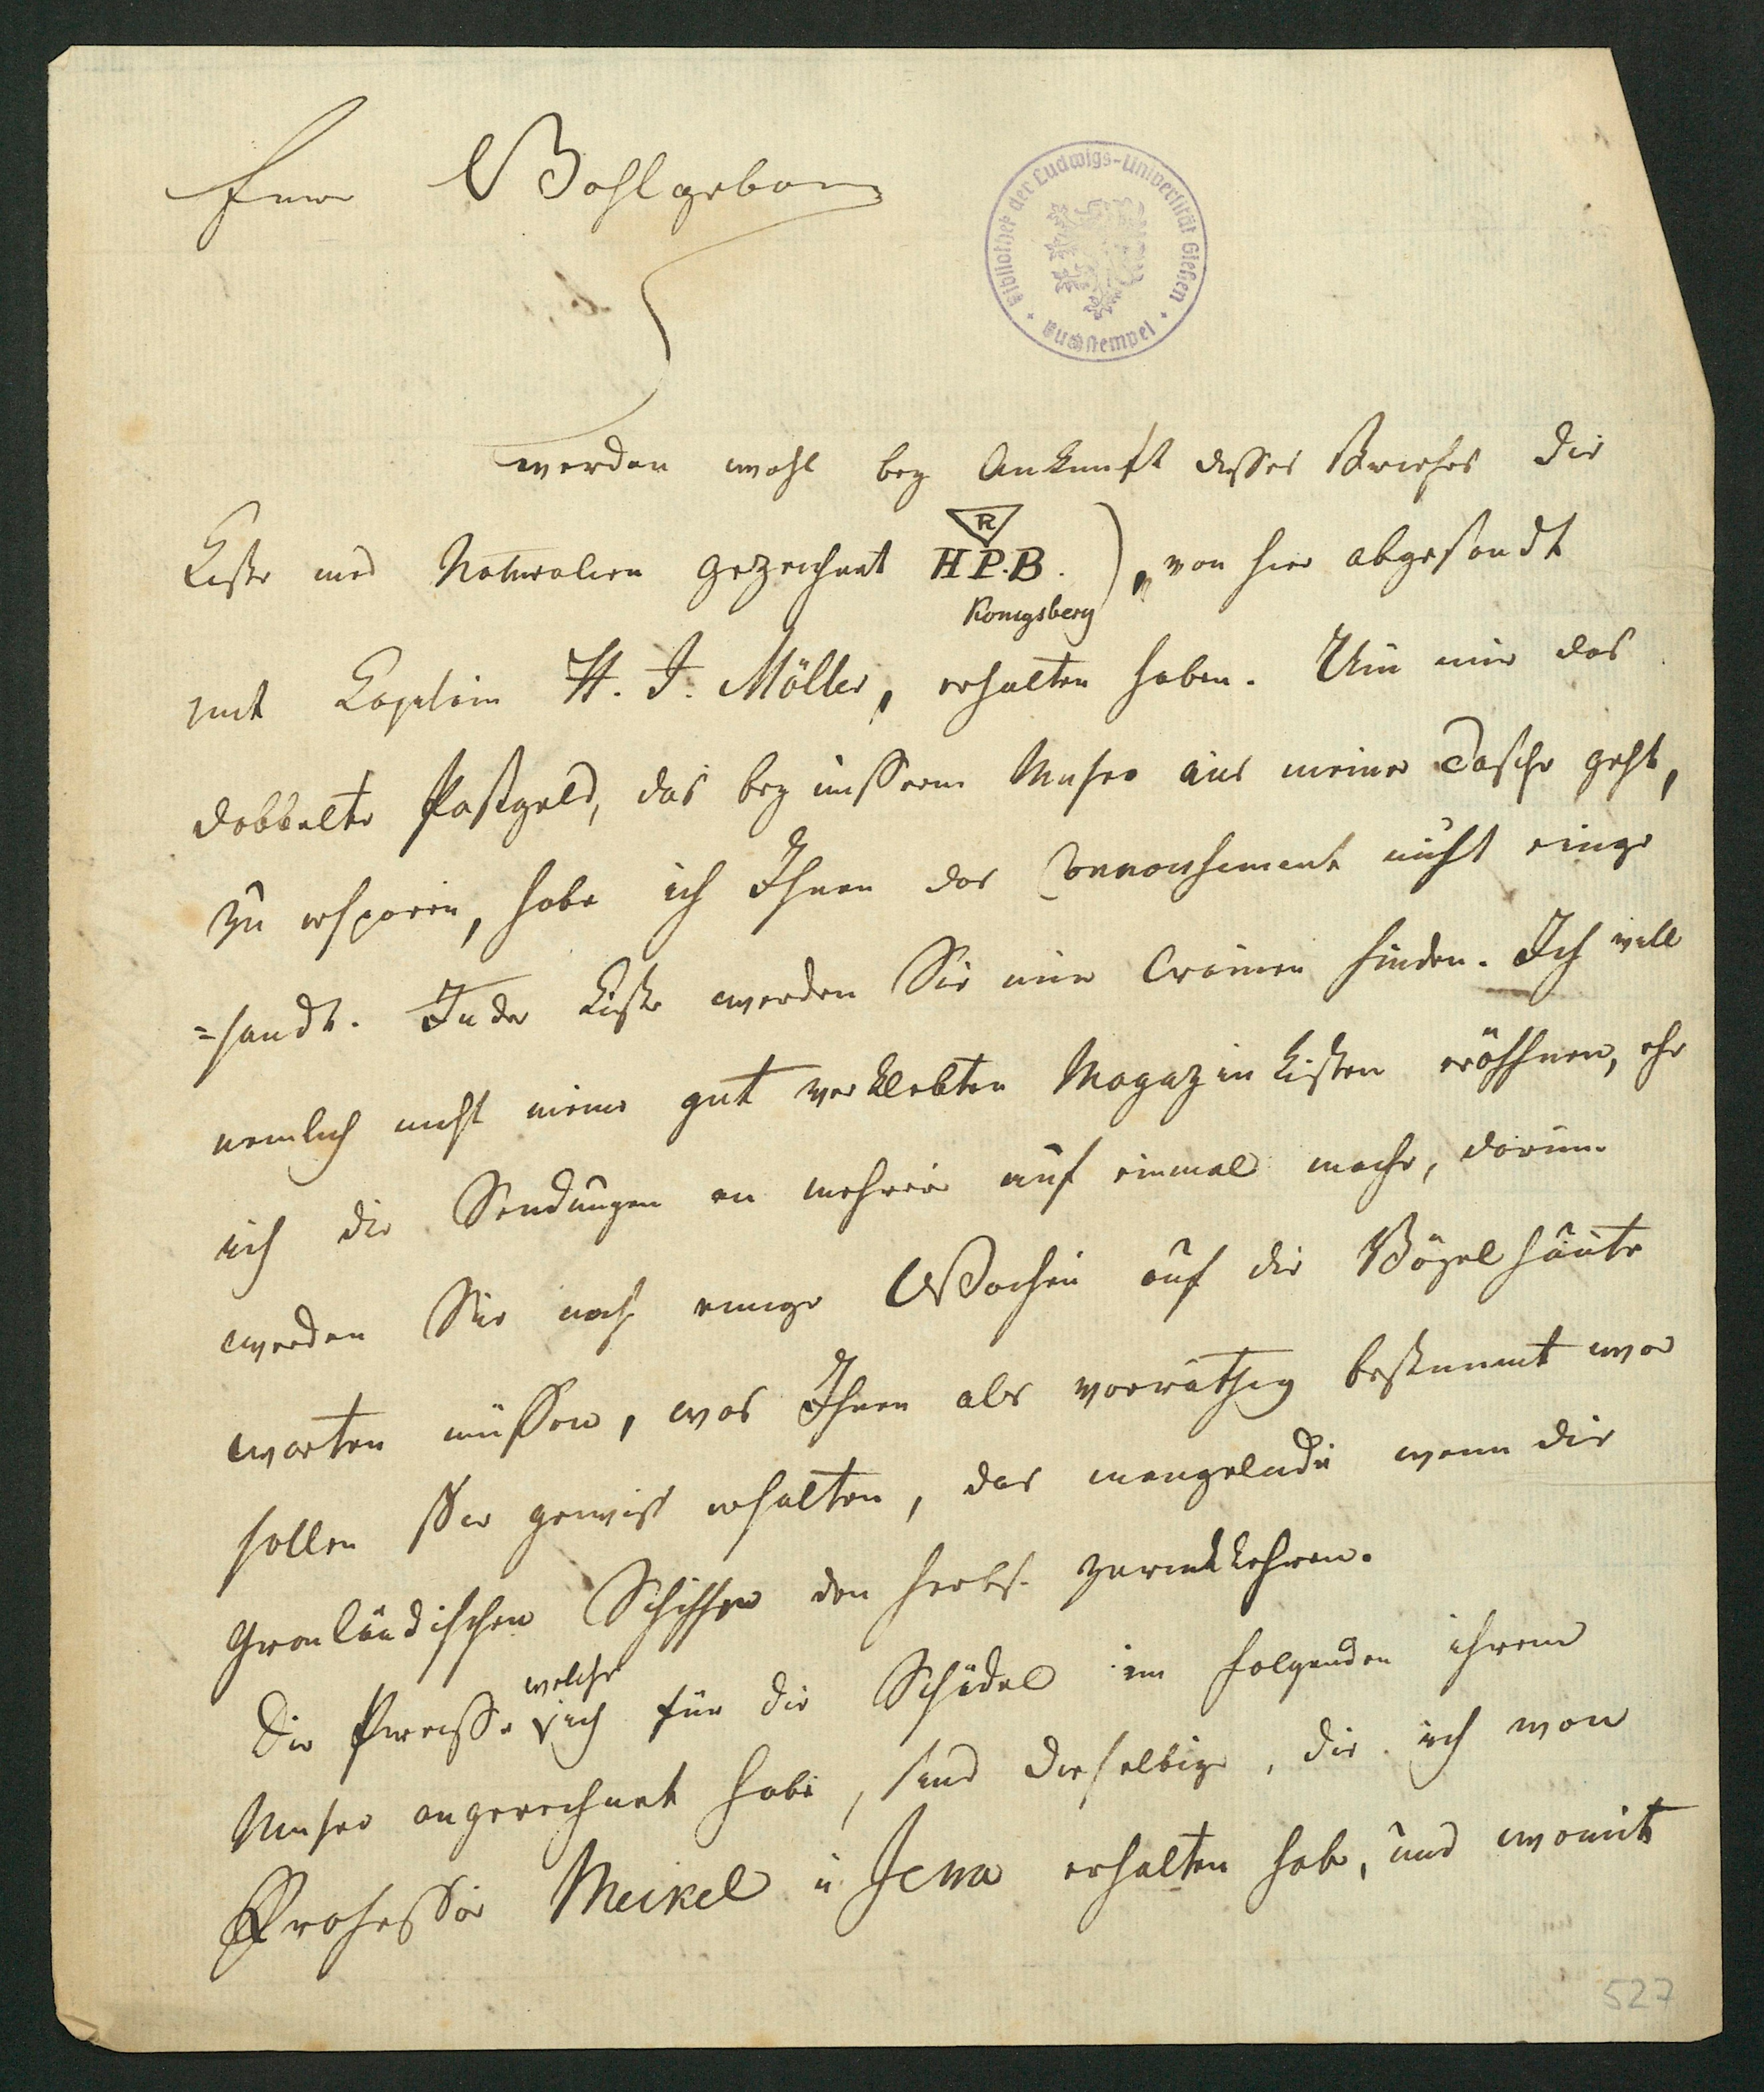 Euer Wohlgebor
Bibliothek der Ludwigs-Universität Gießen
Buchstempel
werden wohl bey Ankunft dieses Briefes die
Kiste mit Naturalien gezeichnet R H P. B. ), von hier abgesandt
Konigsberg
mit Kapitain H. J. Möller, erhalten haben. Um mir das
dobbelte Postgeld, das bey unsserem Museo aus meiner Tasche geht,
zu ersparen, habe ich Ihnen das Connoisement nicht einge
=sandt. In der Kiste werden Sie nur Cranien finden. Ich will
nemlich nicht meine gut verklebten Magazinkisten eröffnen, ehe
ich die Sendungen an mehrere auf einmal mache, darum
werden Sie noch einige Wochen auf die Vögelhäute
warten müssen, was Ihnen als vorräthig bestimmt war
sollen Sie gewiss erhalten, das mangelnde wenn die
Gronländischen Schiffe den Herbst zurückkehren.
Die Preisse welche ich für die Schädel im folgenden ihrem
Museo angerechnet habe, sind dieselbige, die ich von
Professor Meckel u Jena erhalten habe, und womit
527